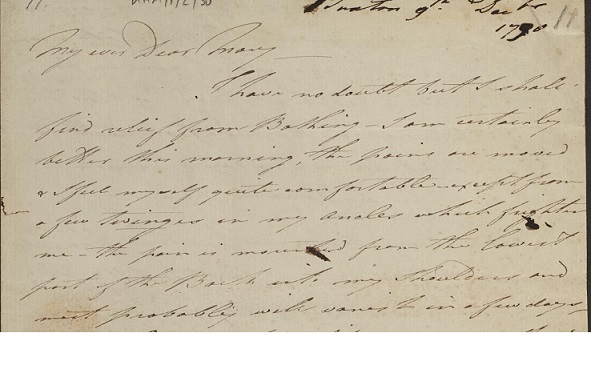 Buxton 9th Decbr
1790
My ever Dear Mary
I have no doubt but I shall
find relief from Bathing - I am certainly
better this morning, the pains are moved
& I feel myself quite comfortable except from
a few twinges in my ancles which frighten
me - the pain is mounted from the lowest
part of the Back into my Shoulders and
most probably will vanish in a few days,